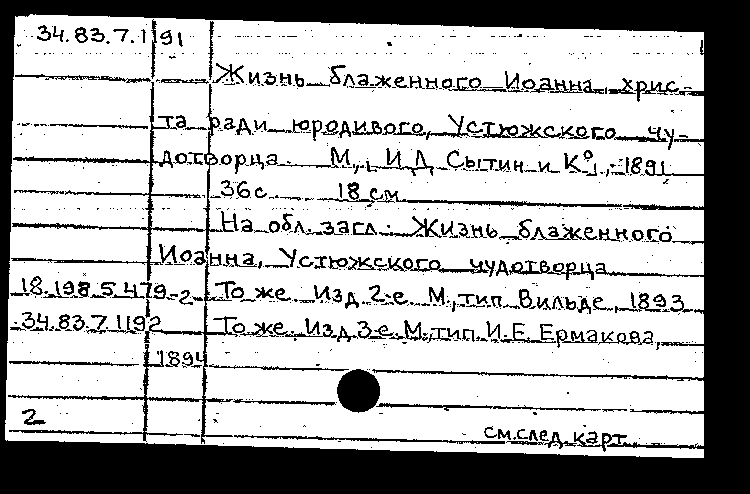 34.83.7.1191
Жизнь блаженного Иоанна, хрис-
та ради юродивого, Устюжского чу-
дотворца. М., И.Д. Сытин и К°, 1891
36с. 18 см.
На обл. загл.: Жизнь блаженного
Иоанна, Устюжского чудотворца.
18.198.5.479-2 То же. Изд. 2-е. М., тип. Вильде, 1893
34.83.7.1192 То же. Изд. 3-е. М., тип. И.Е. Ермакова,
1894
2
см.след.карт.